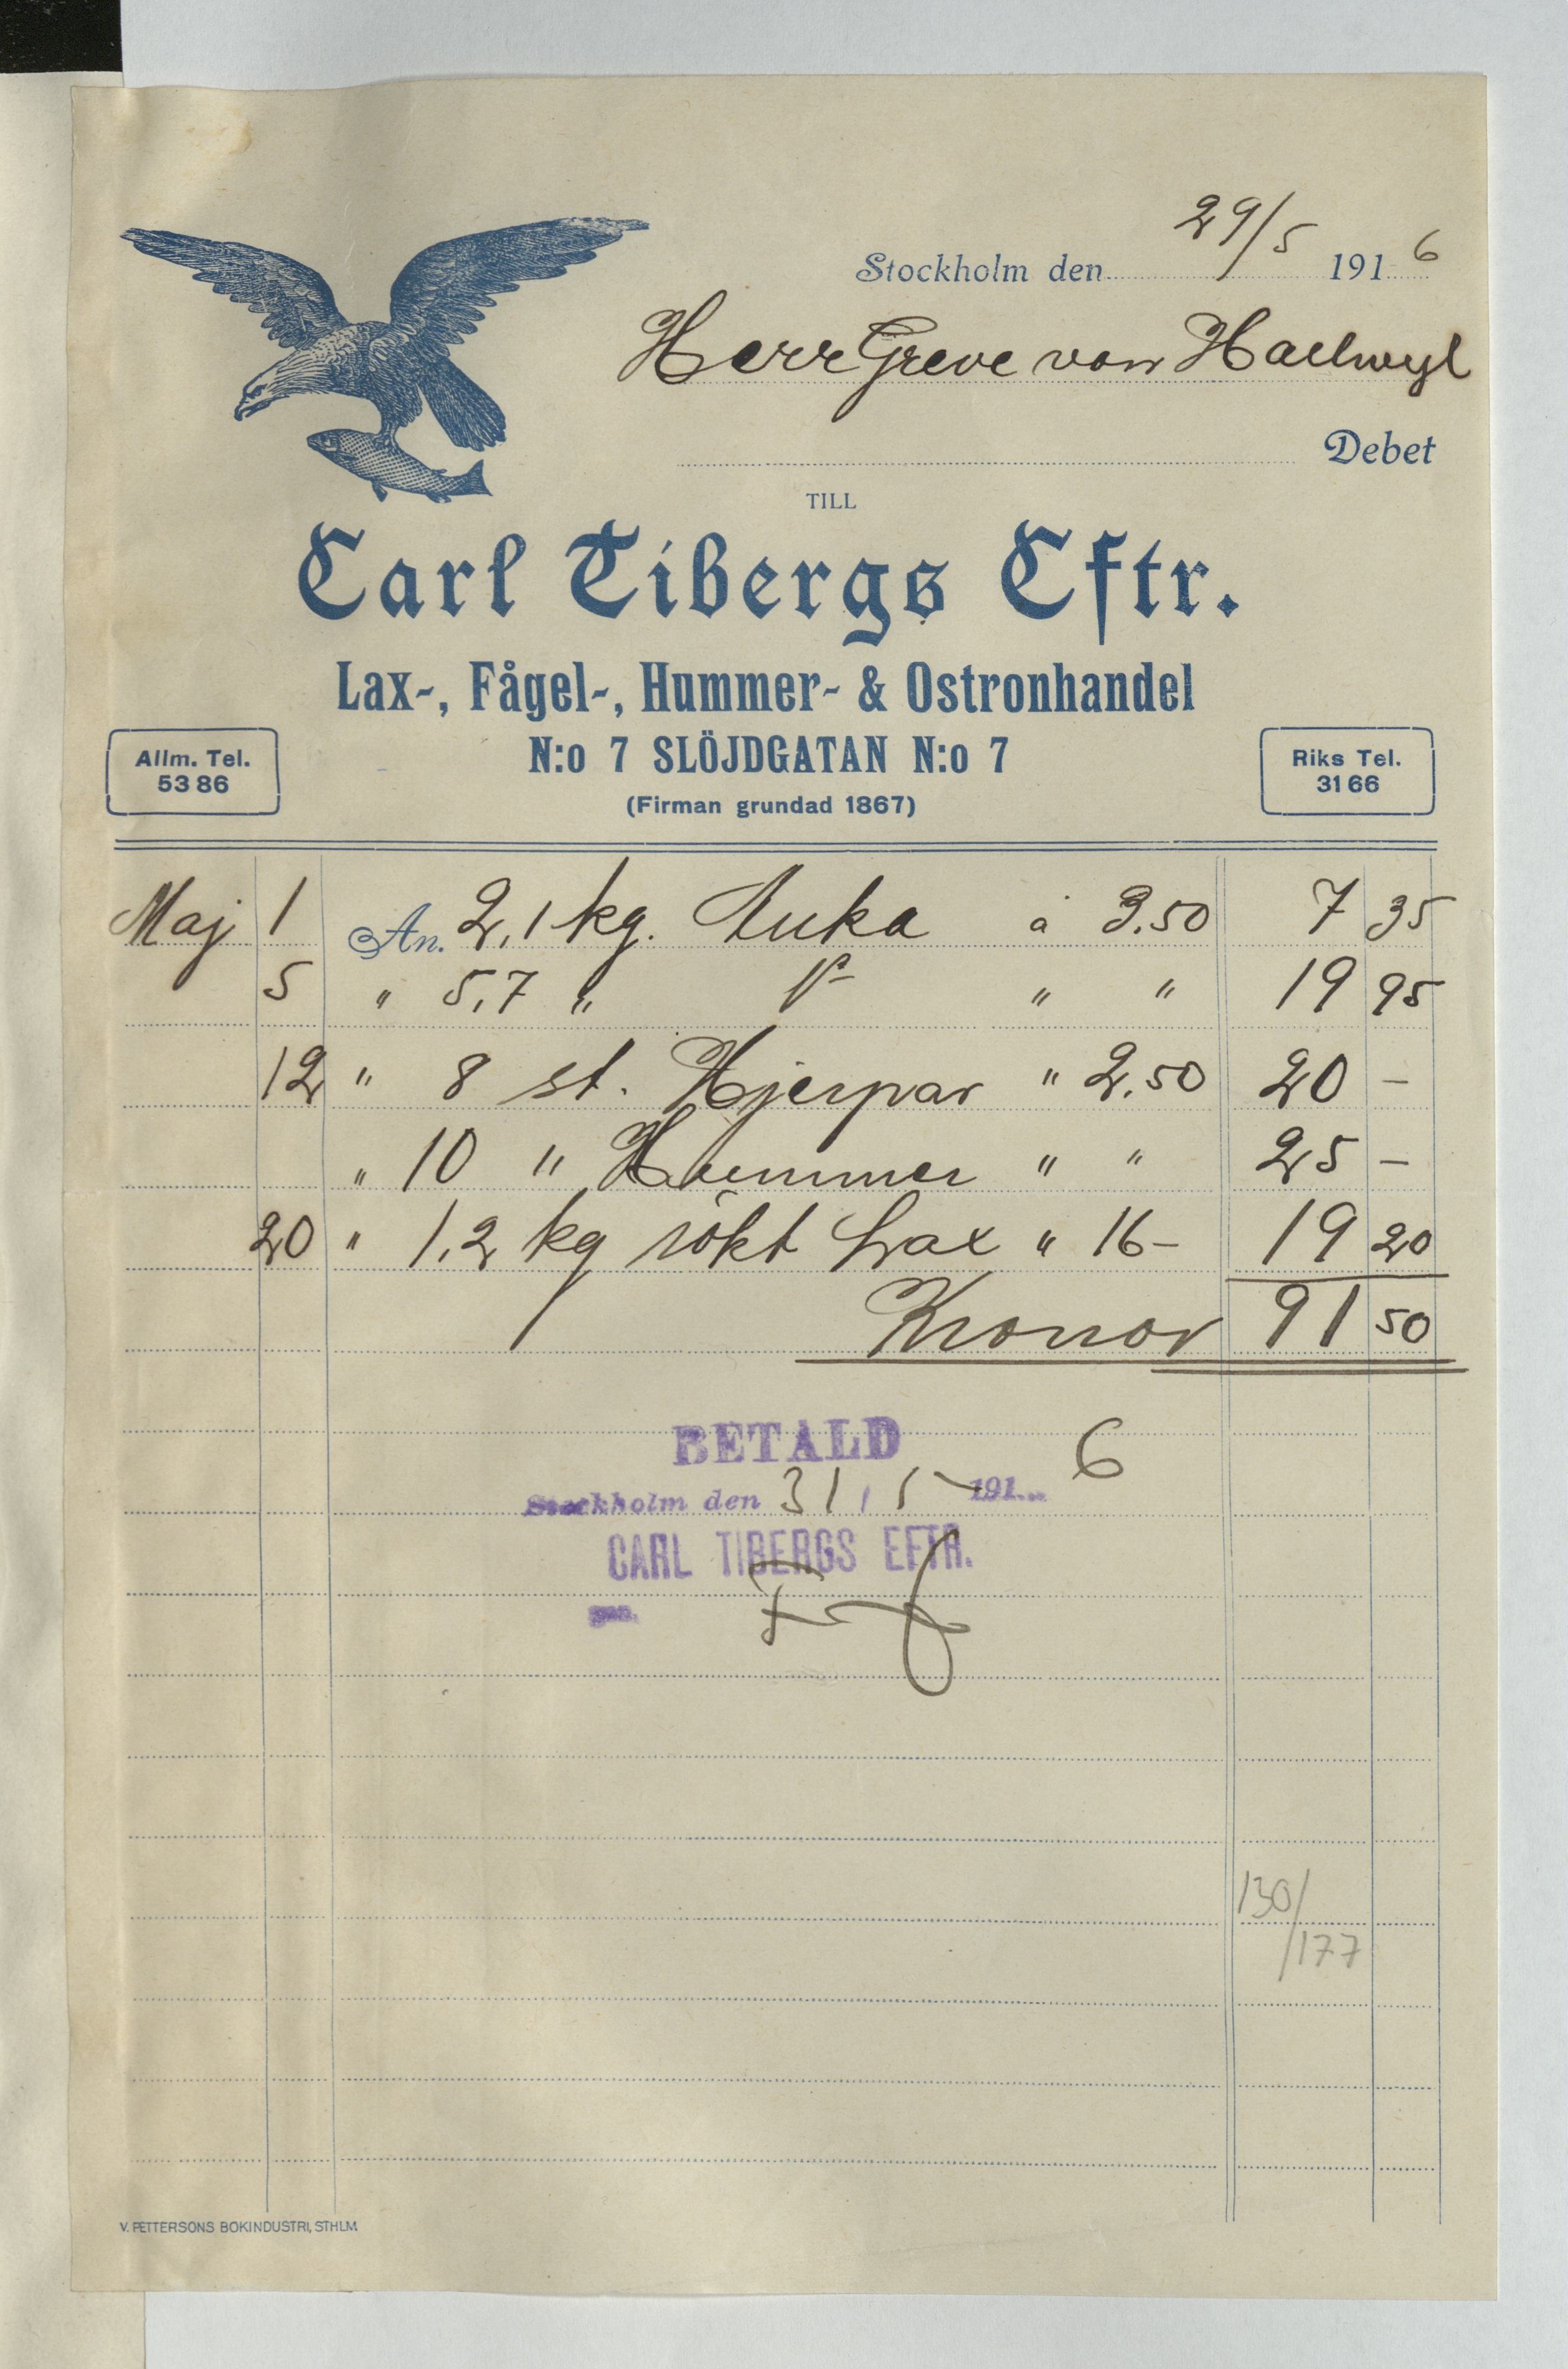 Stockholm den 29/5 1916
Herr Greve von Hallwyl
Debet
TILL
Carl Tibergs Eftr.
Lax-, Fågel-, Hummer- & Ostronhandel
N:o 7 SLÖJDGATAN N:o 7
Allm. Tel.
53 86
Riks Tel.
31 66
(Firman grundad 1867)
Maj 1 An. 2,1 kg. Kuka à 3.50 7 35
5 " 5,7 " " " 19 95
12 " 8 st. Hjerpar " 2.50 20 –
" 10 " Hummer " " 25 –
20 " 1,2 kg rökt Lax " 16 – 19 20
Kronor 91 50
BETALD
Stockholm den 31/5 1916
CARL TIBERGS EFTR.
130/
/177
V. PETTERSONS BOKINDUSTRI, STHLM